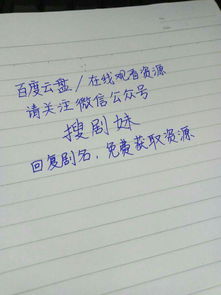 百度云盘/在线观看资源
请关注微信公众号
搜剧妹
回复剧名,免费获取资源